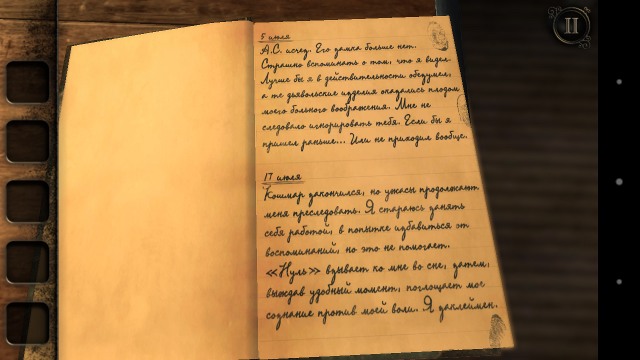 5 июля
А.С. исчез. Его замка больше нет.
Страшно вспоминать о том, что я видел.
Лучше бы я в действительности обезумел,
а те дьявольские изделия оказались плодом
моего больного воображения. Мне не
следовало игнорировать тебя. Если бы я
пришел раньше... Или не приходил вообще.
17 июля
Кошмар закончился, но ужасы продолжают
меня преследовать. Я стараюсь занять
себя работой, в попытке избавиться от
воспоминаний, но это не помогает.
«Нуль» взывает ко мне во сне, затем,
выждав удобный момент, поглощает мое
сознание против моей воли. Я заклеймен.